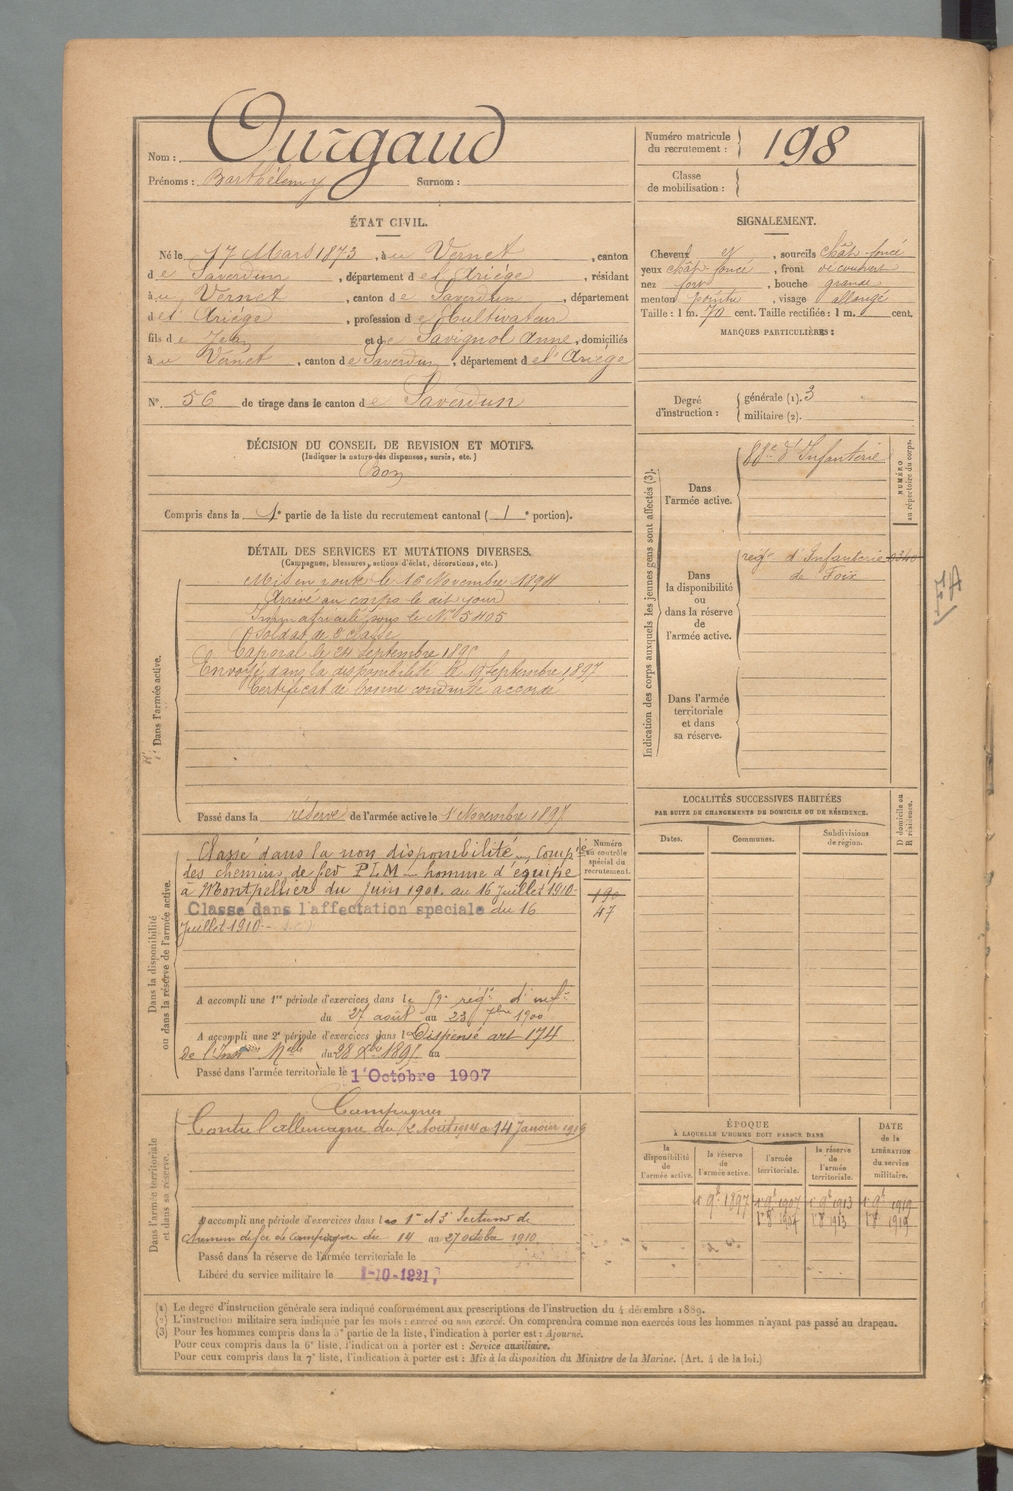 Nom : Ourgaud
Prénoms : Barthélemy Surnom :
Numéro matricule du recrutement : 198
Classe de mobilisation :
ÉTAT CIVIL.
Né le 17 Mars 1873, à u Vernet, canton
d e Saverdun, département d e l'Ariège, résidant
à u Vernet, canton d e Saverdun, département
d e l'Ariège, profession d e Cultivateur
fils d e Jean et d e Savignol Anne, domiciliés
à u Vernet, canton d e Saverdun, département d e l'Ariège
N° 56 de tirage dans le canton d e Saverdun
SIGNALEMENT.
Cheveux et, sourcils chât. foncé
yeux chât. foncé, front découvert
nez fort, bouche grande
menton pointu, visage allongé
Taille : 1 m. 70 cent. Taille rectifiée : 1 m. cent.
MARQUES PARTICULIÈRES :
Degré d'instruction : générale (1). 3
militaire (2).
DÉCISION DU CONSEIL DE REVISION ET MOTIFS.
(Indiquer la nature des dispenses, sursis, etc.)
Bon
Compris dans la 1e partie de la liste du recrutement cantonal ( 1e portion).
DÉTAIL DES SERVICES ET MUTATIONS DIVERSES.
(Campagnes, blessures, actions d'éclat, décorations, etc.)
Dans l'armée active.
Mis en route le 16 Novembre 1894
Arrivé au corps le dit jour
Immatriculé sous le N° 5405
Soldat de 2e classe
Caporal le 24 Septembre 1896
Envoyé dans la disponibilité le 19 Septembre 1897
Certificat de bonne conduite accordé
Passé dans la réserve de l'armée active le 1 Novembre 1897
Indication des corps auxquels les jeunes gens sont affectés (3).
NUMÉRO au répertoire du corps.
Dans l'armée active.
88e d'Infanterie
Dans la disponibilité ou dans la réserve de l'armée active.
régt d'Infanterie
de Foix
Dans l'armée territoriale et dans sa réserve.
Dans la disponibilité ou dans la réserve de l'armée active.
Numéro au contrôle spécial du recrutement.
Classé dans la non disponibilité Compie
des chemins de fer PLM - homme d'équipe
à Montpellier du Juin 1901 au 16 Juillet 1910
190
Classé dans l'affectation spéciale du 16
47
Juillet 1910
A accompli une 1re période d'exercices dans le 59e régt d'infie
du 27 août au 23 7bre 1900
A accompli une 2e période d'exercices dans l Dispensé art 174
de l'Inst Melle du 28 Xbre 1895 au
Passé dans l'armée territoriale le 1 Octobre 1907
LOCALITÉS SUCCESSIVES HABITÉES
PAR SUITE DE CHANGEMENTS DE DOMICILE OU DE RÉSIDENCE.
Dates. Communes. Subdivisions de région.
D domicile ou R résidence.
Dans l'armée territoriale et dans sa réserve.
Campagnes
Contre l'allemagne du 2 Août 1914 a 14 Janvier 1919
A accompli une période d'exercices dans les 1re et 3e Sections de
chemin de fer de campagne du 14 au 27 octobre 1910.
Passé dans la réserve de l'armée territoriale le
Libéré du service militaire le 1-10-1921
ÉPOQUE
À LAQUELLE L'HOMME DOIT PASSER DANS
DATE de la LIBÉRATION du service militaire.
la disponibilité de l'armée active.
la réserve de l'armée active.
l'armée territoriale.
la réserve de l'armée territoriale.
1er 9bre 1897 1er 9bre 1907 1er 9bre 1913 1er 9bre 1919
(1) Le degré d'instruction générale sera indiqué conformément aux prescriptions de l'instruction du 4 décembre 1889.
(2) L'instruction militaire sera indiquée par les mots : exercé ou non exercé. On comprendra comme non exercés tous les hommes n'ayant pas passé au drapeau.
(3) Pour les hommes compris dans la 5e partie de la liste, l'indication à porter est : Ajourné.
Pour ceux compris dans la 6e liste, l'indication à porter est : Service auxiliaire.
Pour ceux compris dans la 7e liste, l'indication à porter est : Mis à la disposition du Ministre de la Marine. (Art. 4 de la loi.)